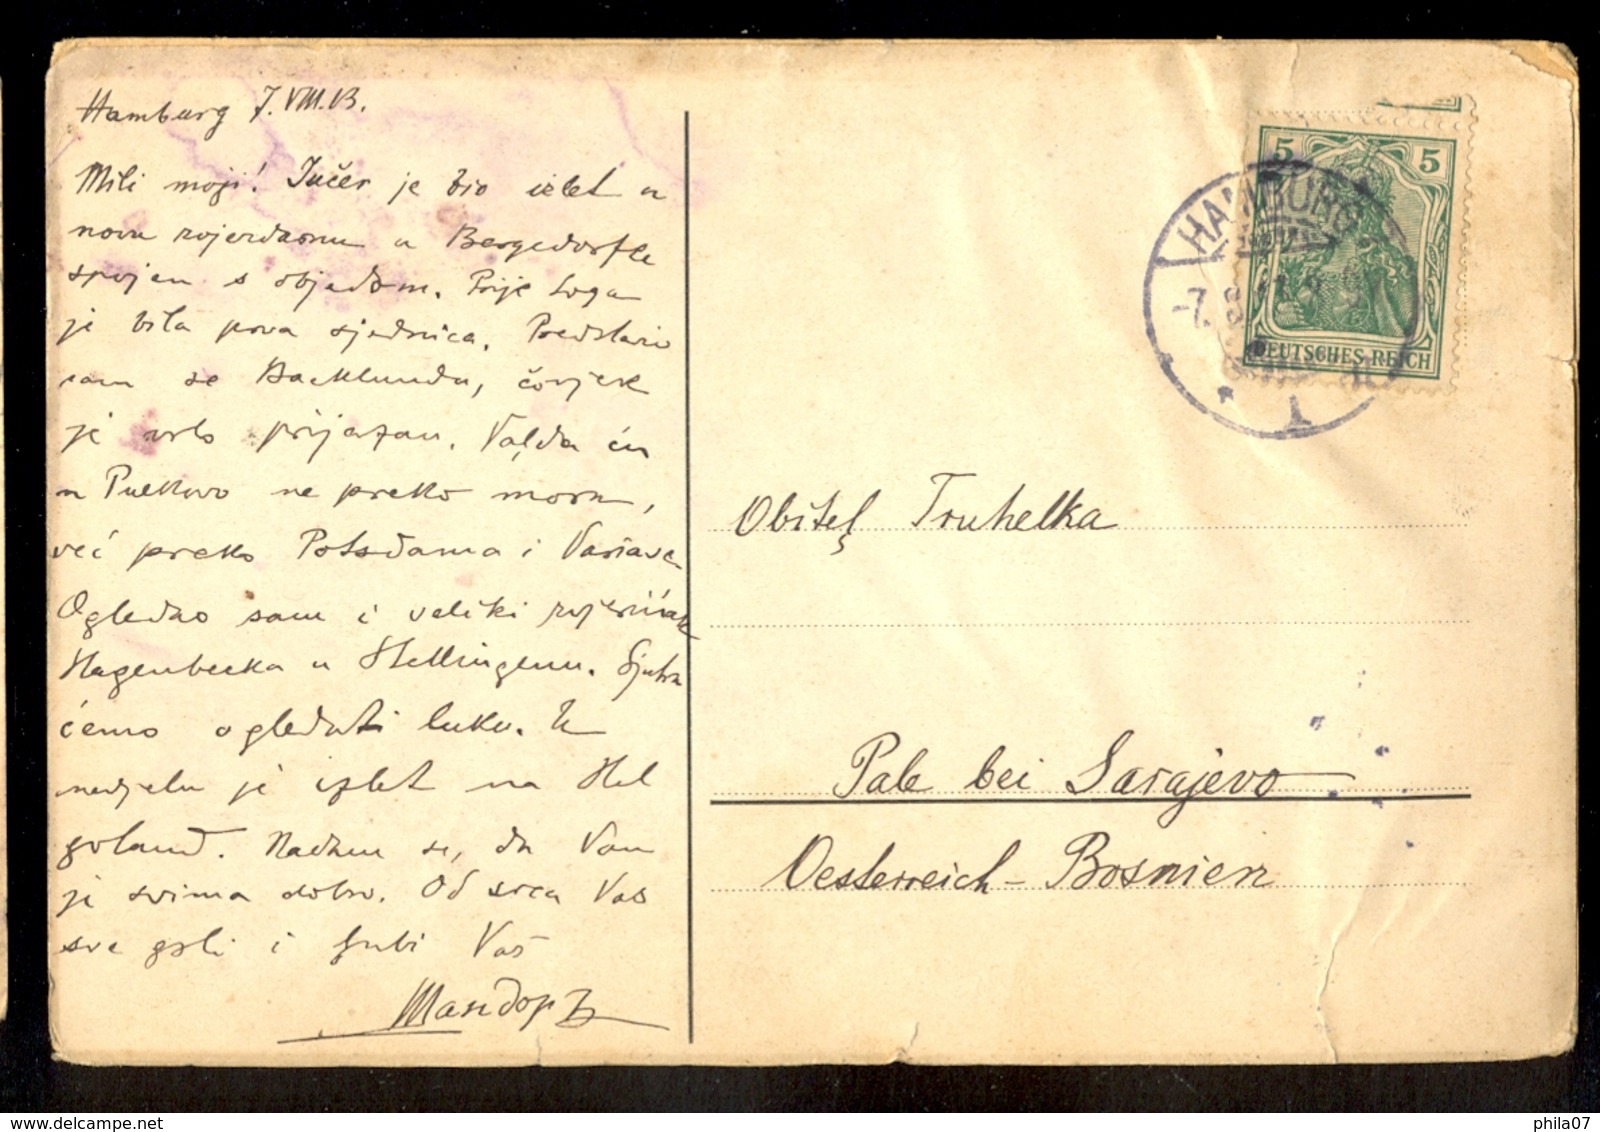 Hamburg 7.VIII.13.
Mili moji! Jučer je bio izlet u
novu zvjezdarnu u Bergedorfu
spojen s objedom. Prije toga
je bila prva sjednica. Predstavio
sam se Backlundu, čovjek
je vrlo prijazan. Valda ću
u Pulkovo ne preko mora,
već preko Potsdama i Varšave.
Ogledao sam i veliki zvjerinjak
Hagenbecka u Stellingenu. Sjutra
ćemo ogledati luku. U
nedjelu je izlet na Hel
goland. Nadam se, da Vam
je svima dobro. Od srca Vas
sve grli i ljubi Vaš
HAMBURG
-7. 8
1
5 5
DEUTSCHES REICH
Obitel Truhelka
Pale bei Sarajevo
Oesterreich - Bosnien
phila07